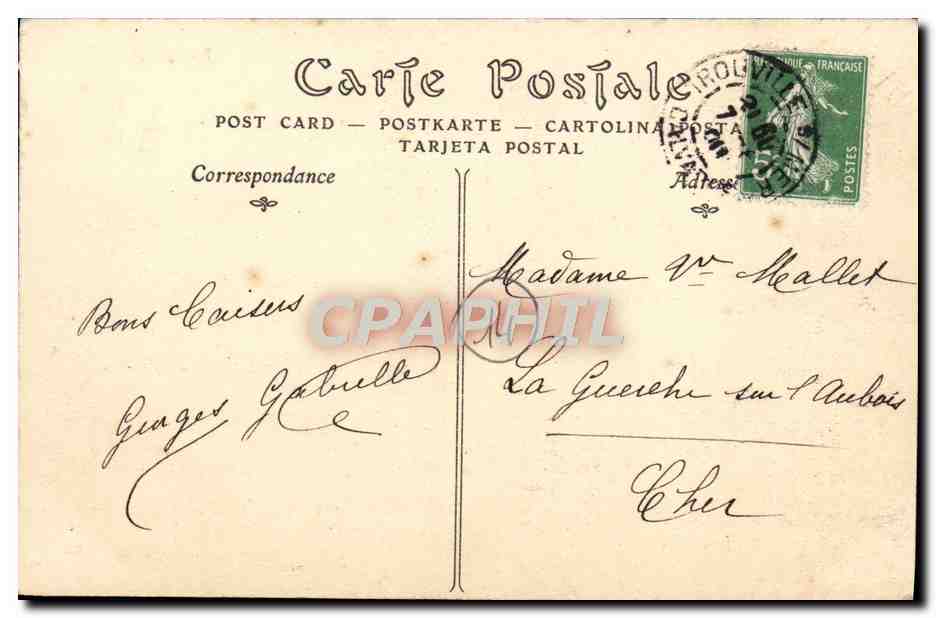 Carte Postale
POST CARD — POSTKARTE — CARTOLINA POSTA
TARJETA POSTAL
Correspondance
Adresse
RÉPUBLIQUE FRANÇAISE
POSTES
TROUVILLE S/MER
Bons Baisers
Georges Gabrielle
Madame Vve Mallet
14
La Guerche sur l'Aubois
Cher
CPAPHIL